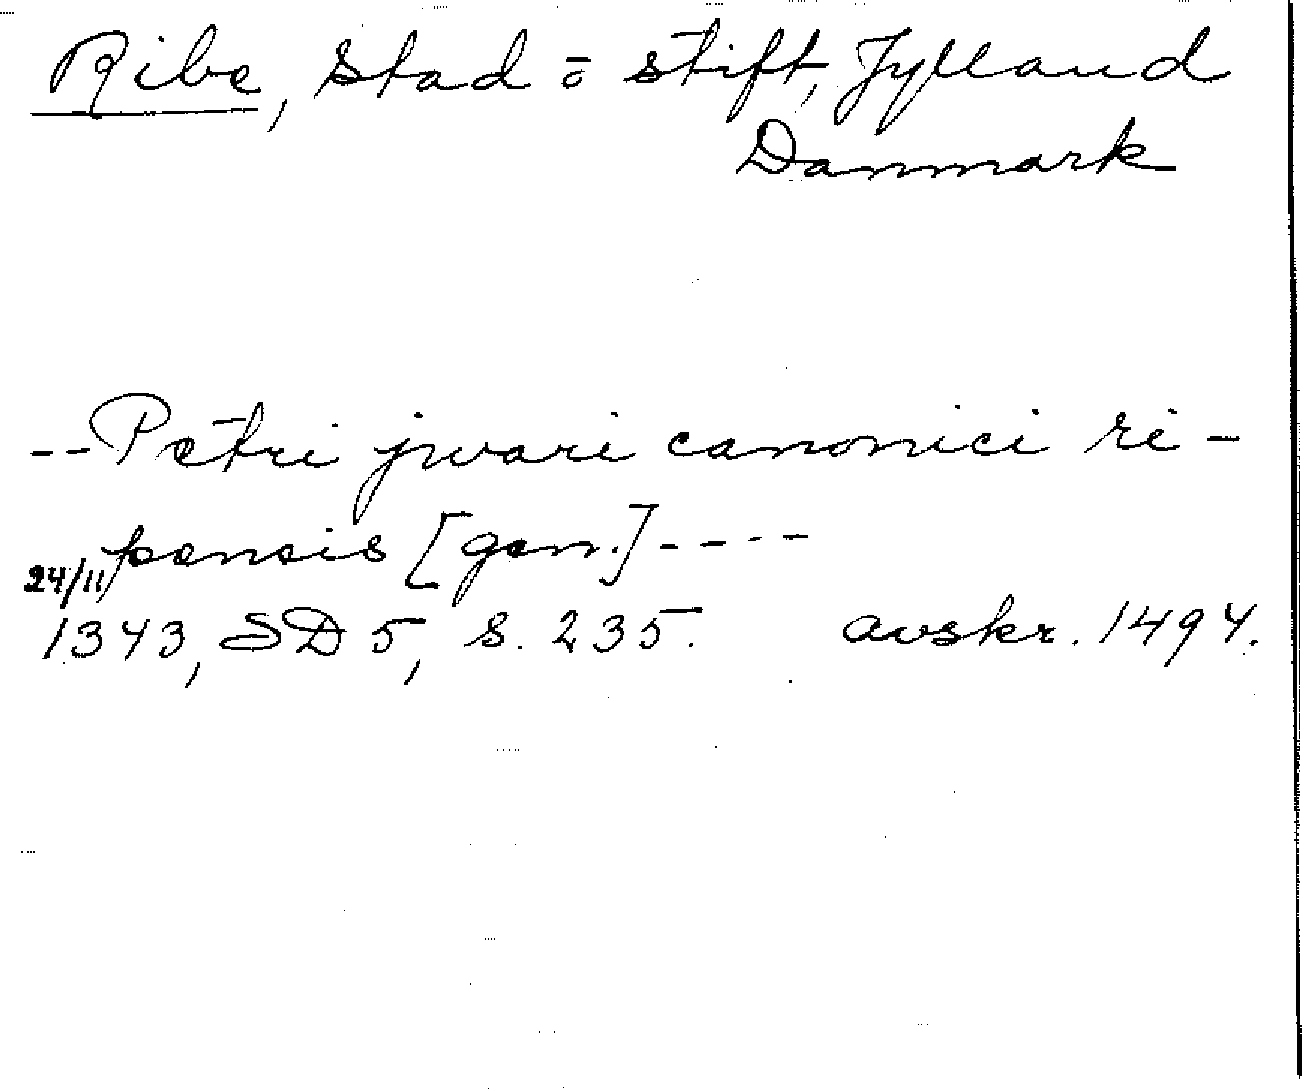 Ribe, Stad o stift, Jylland
Danmark
-- Petri jwari canonici ri-
pensis [gen.] ----
24/11
1343, SD 5, s. 235. avskr. 1494.